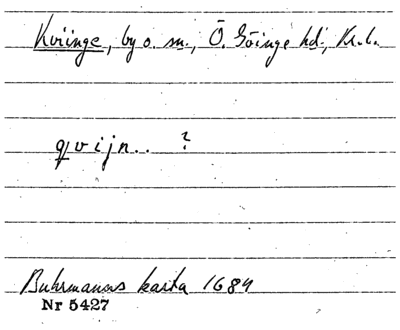 Kviinge, by o. sn., Ö. Göinge hd., Kr.l.
qvijn.. ?
Buhrmanns karta 1684
Nr 5427